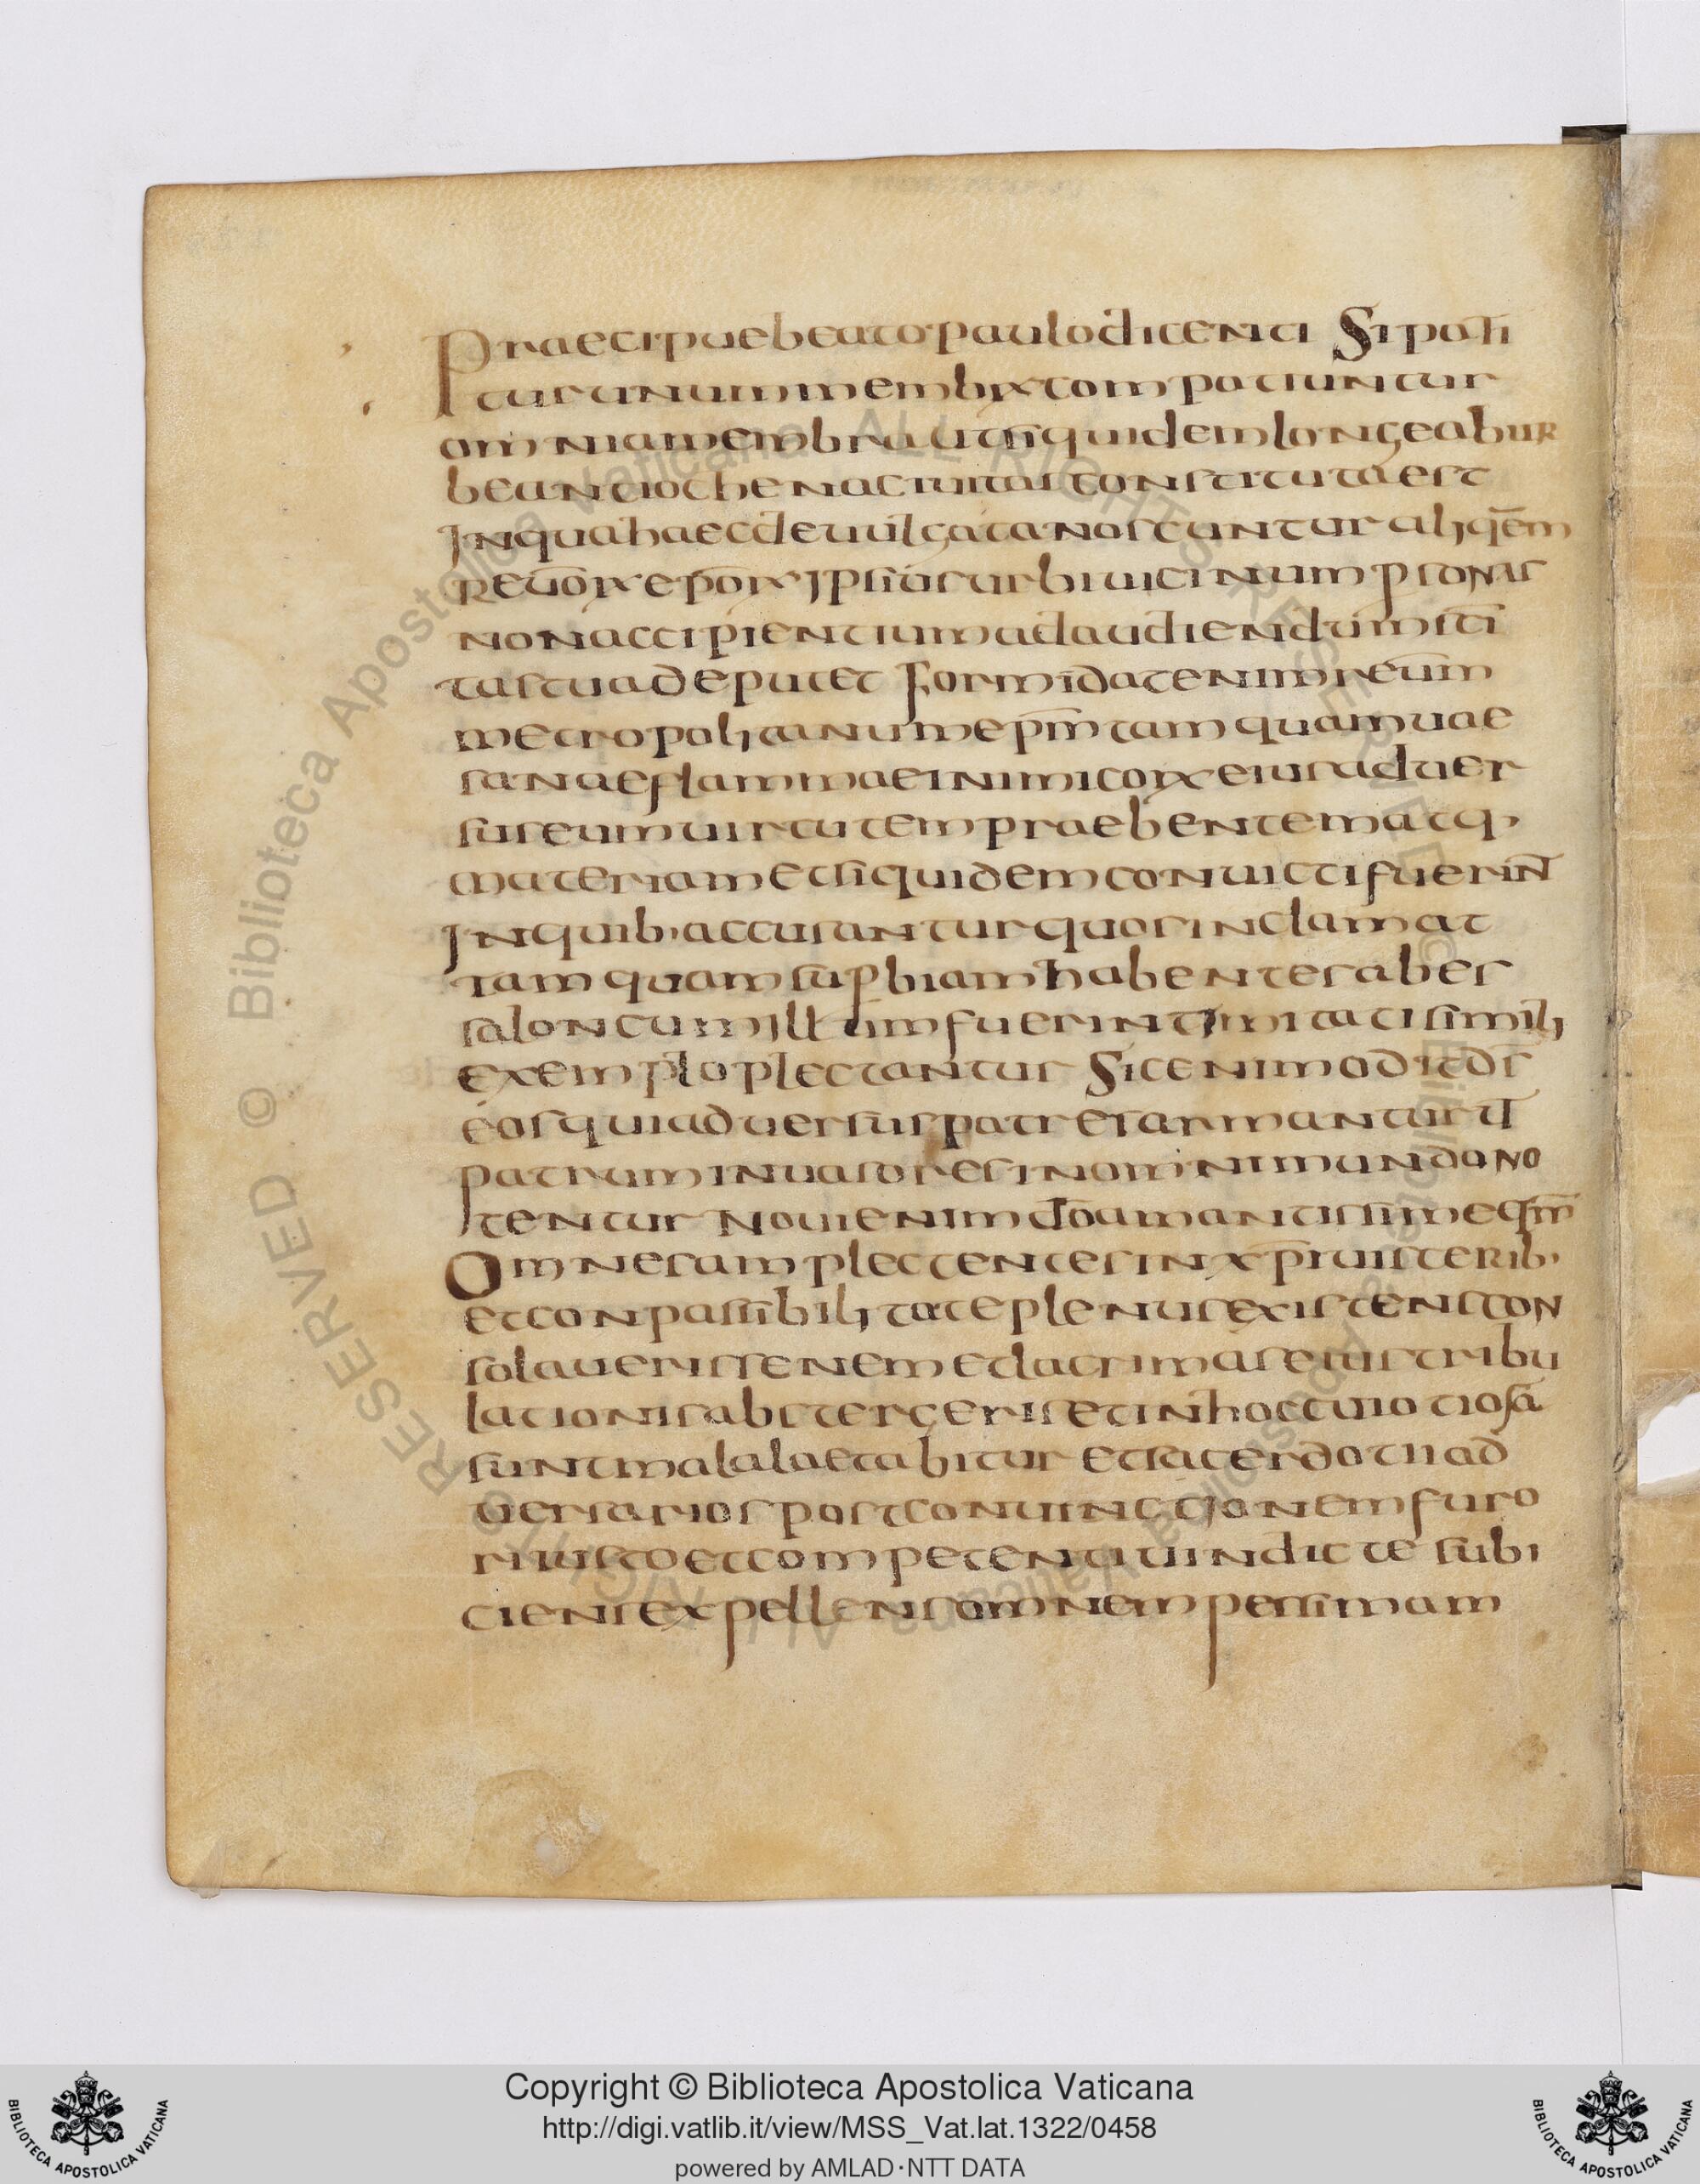 Praecipuebeatopaulodicenti Sipati
turunummembrxcompatiuntur
omniamembrautn̄quidemlongeabur
beantiochenaciuitasconstitutaest
Inquahaecdeuulgatanoscuntur aliq̄em
reuōrxep̄orxipsiusurbiuicinum psonas
nonaccipientiumadaudiendum̄isti
tastuadeputet Formīdatenimreum̄
metropolitanumep̄mtamquamuae
sanaeflammaeinimicorxeiusaduer
suseumuirtutempraebentematq·
materiametsiquidemconuictifuerin̄t
Inquib·accusanturquosinclamat
tamquamsupbiamhabentesabes
saloncumillumfuerintimitatisimili
exemploplectantur Sicenimoditd̄s
eosquiaduersuspatresarmanturut̄
patruminuasoresinomnimundono
tentur Nouienimd̄oamantissimeqm̄
Omnesamplectentesinxp̄iuisterib·
etconpassibilitateplenusexistenscon
solauerissenemetlacrimaseiustribu
lationisabstergeriset inhoccuiotiosā
suntmalalaetabitur etsacerdotiiad
uersariospostconuinctionemfuro
riiustoetcompetentiuindicte subi
ciensexpellensomnempessimam
Copyright © Biblioteca Apostolica Vaticana
http://digi.vatlib.it/view/MSS_Vat.lat.1322/0458
powered by AMLAD·NTT DATA
BIBLIOTECA APOSTOLICA VATICANA
BIBLIOTECA APOSTOLICA VATICANA
© Biblioteca Apostolica Vaticana ALL RIGHTS RESERVED
© Biblioteca Apostolica Vaticana ALL RIGHTS RESERVED